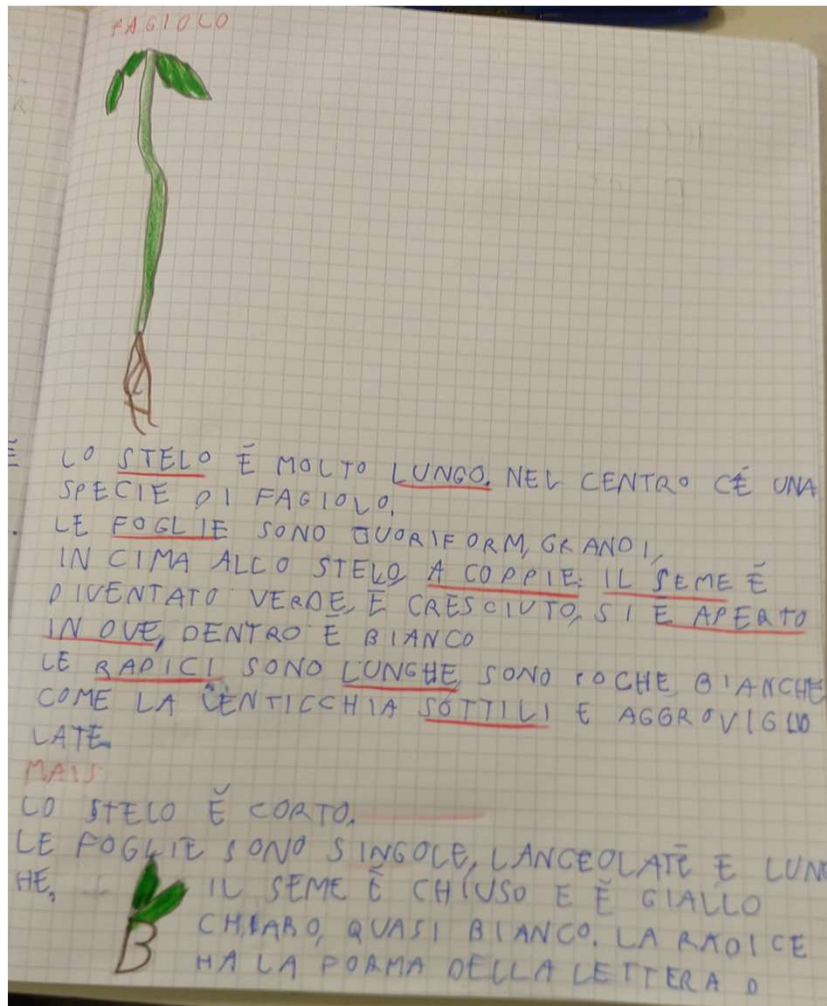 FAGIOLO
LO STELO È MOLTO LUNGO. NEL CENTRO CÉ UNA
SPECIE DI FAGIOLO.
LE FOGLIE SONO QUORIFORM, GRANDI,
IN CIMA ALLO STELO, A COPPIE. IL SEME È
DIVENTATO VERDE, È CRESCIUTO, SI È APERTO
IN DUE, DENTRO È BIANCO
LE RADICI SONO LUNGHE, SONO POCHE, BIANCHE
COME LA LENTICCHIA SOTTILI E AGGROVIGLIO
LATE.
MAIS
LO STELO È CORTO.
LE FOGLIE SONO SINGOLE, LANCEOLATE E LUN
HE,
IL SEME È CHIUSO E È GIALLO
CHIARO, QUASI BIANCO. LA RADICE
HA LA FORMA DELLA LETTERA D